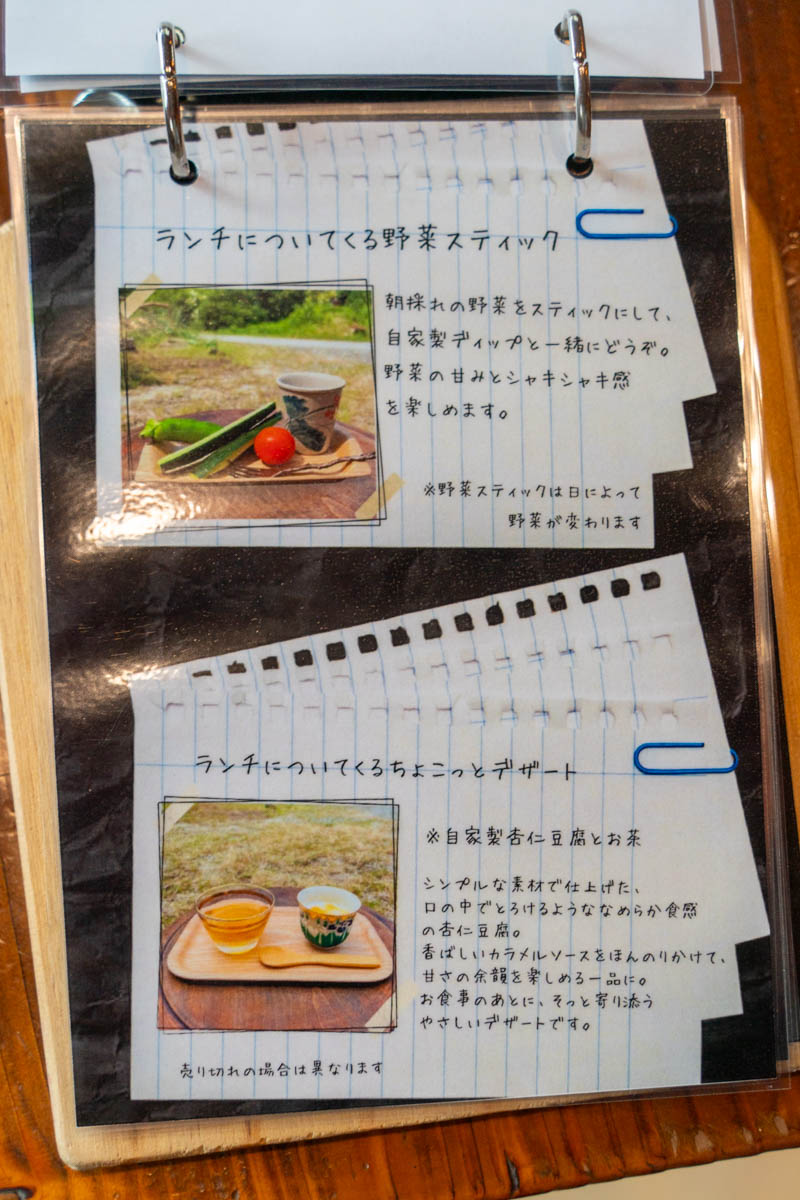 ランチについてくる野菜スティック
朝採れの野菜をスティックにして、
自家製ディップと一緒にどうぞ。
野菜の甘みとシャキシャキ感
を楽しめます。
※野菜スティックは日によって
野菜が変わります
ランチについてくるちょこっとデザート
※自家製杏仁豆腐とお茶
シンプルな素材で仕上げた、
口の中でとろけるようななめらか食感
の杏仁豆腐。
香ばしいカラメルソースをほんのりかけて、
甘さの余韻を楽しめる一品に。
お食事のあとに、そっと寄り添う
やさしいデザートです。
売り切れの場合は異なります